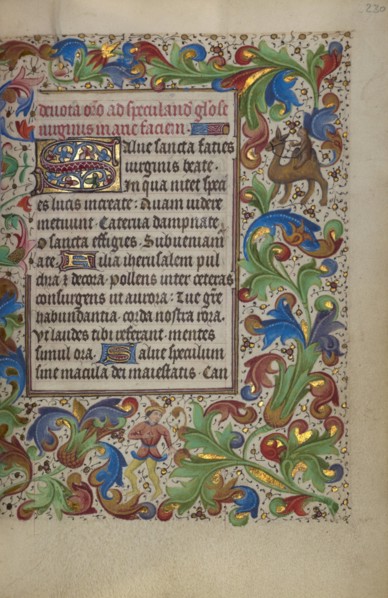 230
deuota oro ad speculand' glose
uirginis marie faciem
Salue sancta facies
uirginis beate.
In qua nitet spea
es lucis increate. Quam uidere
metuunt. Caterua dampnate.
o sancta effigies. Subueniam
ate. Filia iherusalem pul
chra et decora. pollens inter ceteras
consurgens ut aurora. Tue gre
habundantia. corda nostra rora
Ut laudes tibi referant. mentes
simul ora. Salue speculum
sine macula dei maiestatis. Can